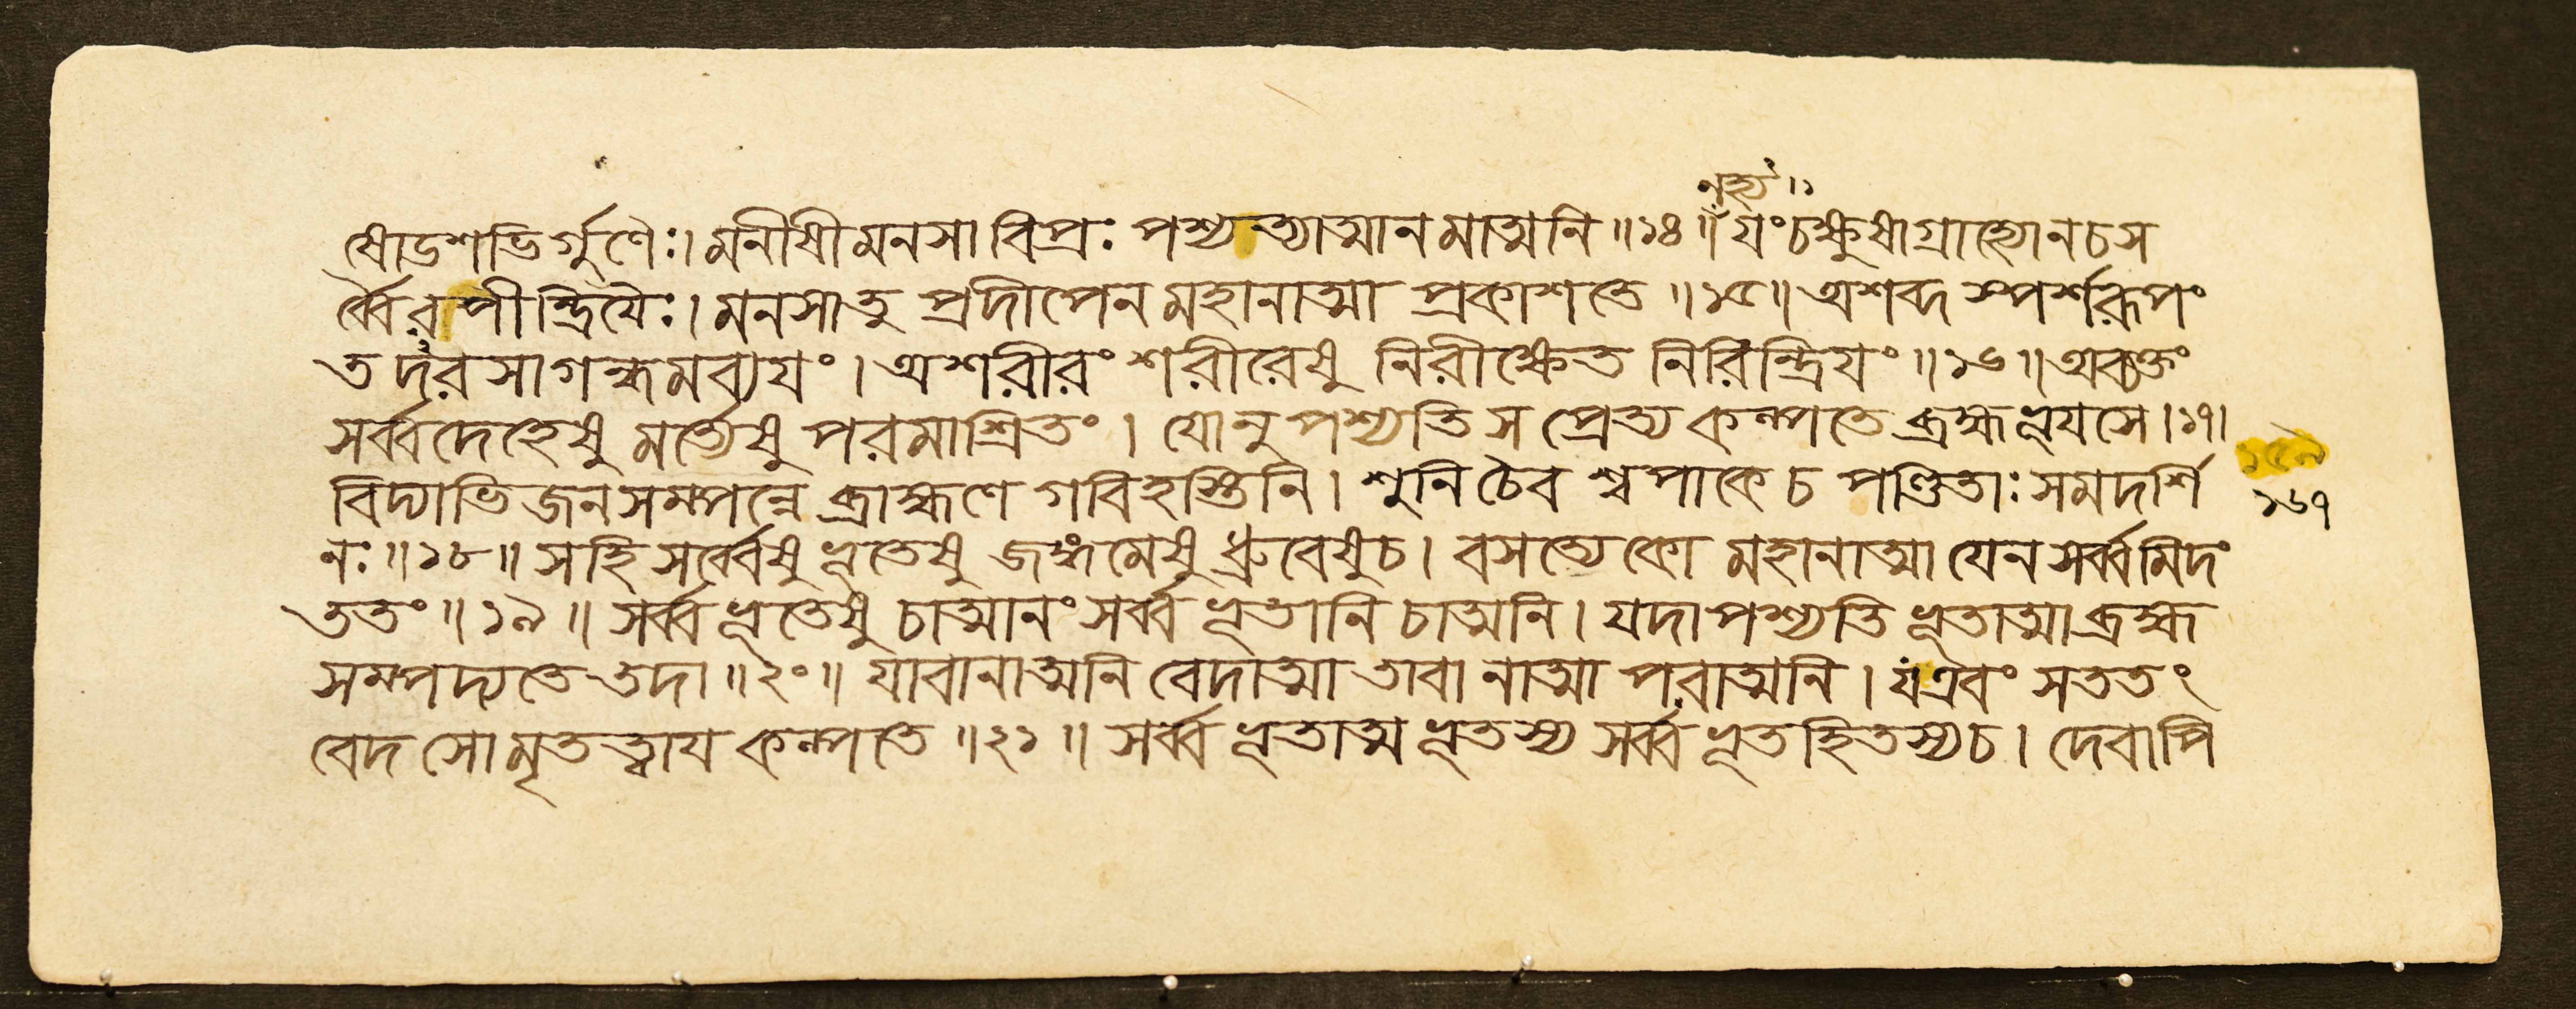 নহ্য ৷৷১
ষোডশভির্গুণৈঃ। মনীষীমনসা বিপ্রঃ পশ্যন্ত্যাত্মানমাত্মনি॥১৪॥ যংচক্ষুষাগ্রাহ্যোনচস
র্ব্বৈরপীন্দ্রিযৈঃ। মনসাতু প্রদীপেন মহানাত্মা প্রকাশতে॥১৫॥ অশব্দস্পর্শরূপং
তদরসাগন্ধমব্যযং। অশরীরং শরীরেষু নিরীক্ষেত নিরিন্দ্রিযং॥১৬॥ অব্যক্তং
সর্ব্বদেহেষু মর্ত্যেষু পরমাশ্রিতং। যোনু পশ্যতি স প্রেত্য কল্পতে ব্রহ্মভূযসে।১৭।
১৫৯
বিদ্যাভিজনসম্পন্নে ব্রাহ্মণে গবিহস্তিনি। শুনি চৈব শ্বপাকে চ পণ্ডিতাঃ সমদর্শি
১৬৭
নঃ॥১৮॥ সহি সর্ব্বেষু ভূতেষু জঙ্গমেষু ধ্রুবেষুচ। বসত্যেকো মহানাত্মা যেন সর্ব্বমিদং
ততং॥১৯॥ সর্ব্বভূতেষু চাত্মানং সর্ব্বভূতানি চাত্মনি। যদা পশ্যতি ভূতাত্মা ব্রহ্ম
সম্পদ্যতে তদা॥২০॥ যাবানাত্মনি বেদাত্মা তাবানাত্মা পরাত্মনি। য এবং সততং
বেদ সোমৃতত্বায কল্পতে॥২১॥ সর্ব্বভূতাত্মভূতস্য সর্ব্বভূতহিতস্যচ। দেবাপি